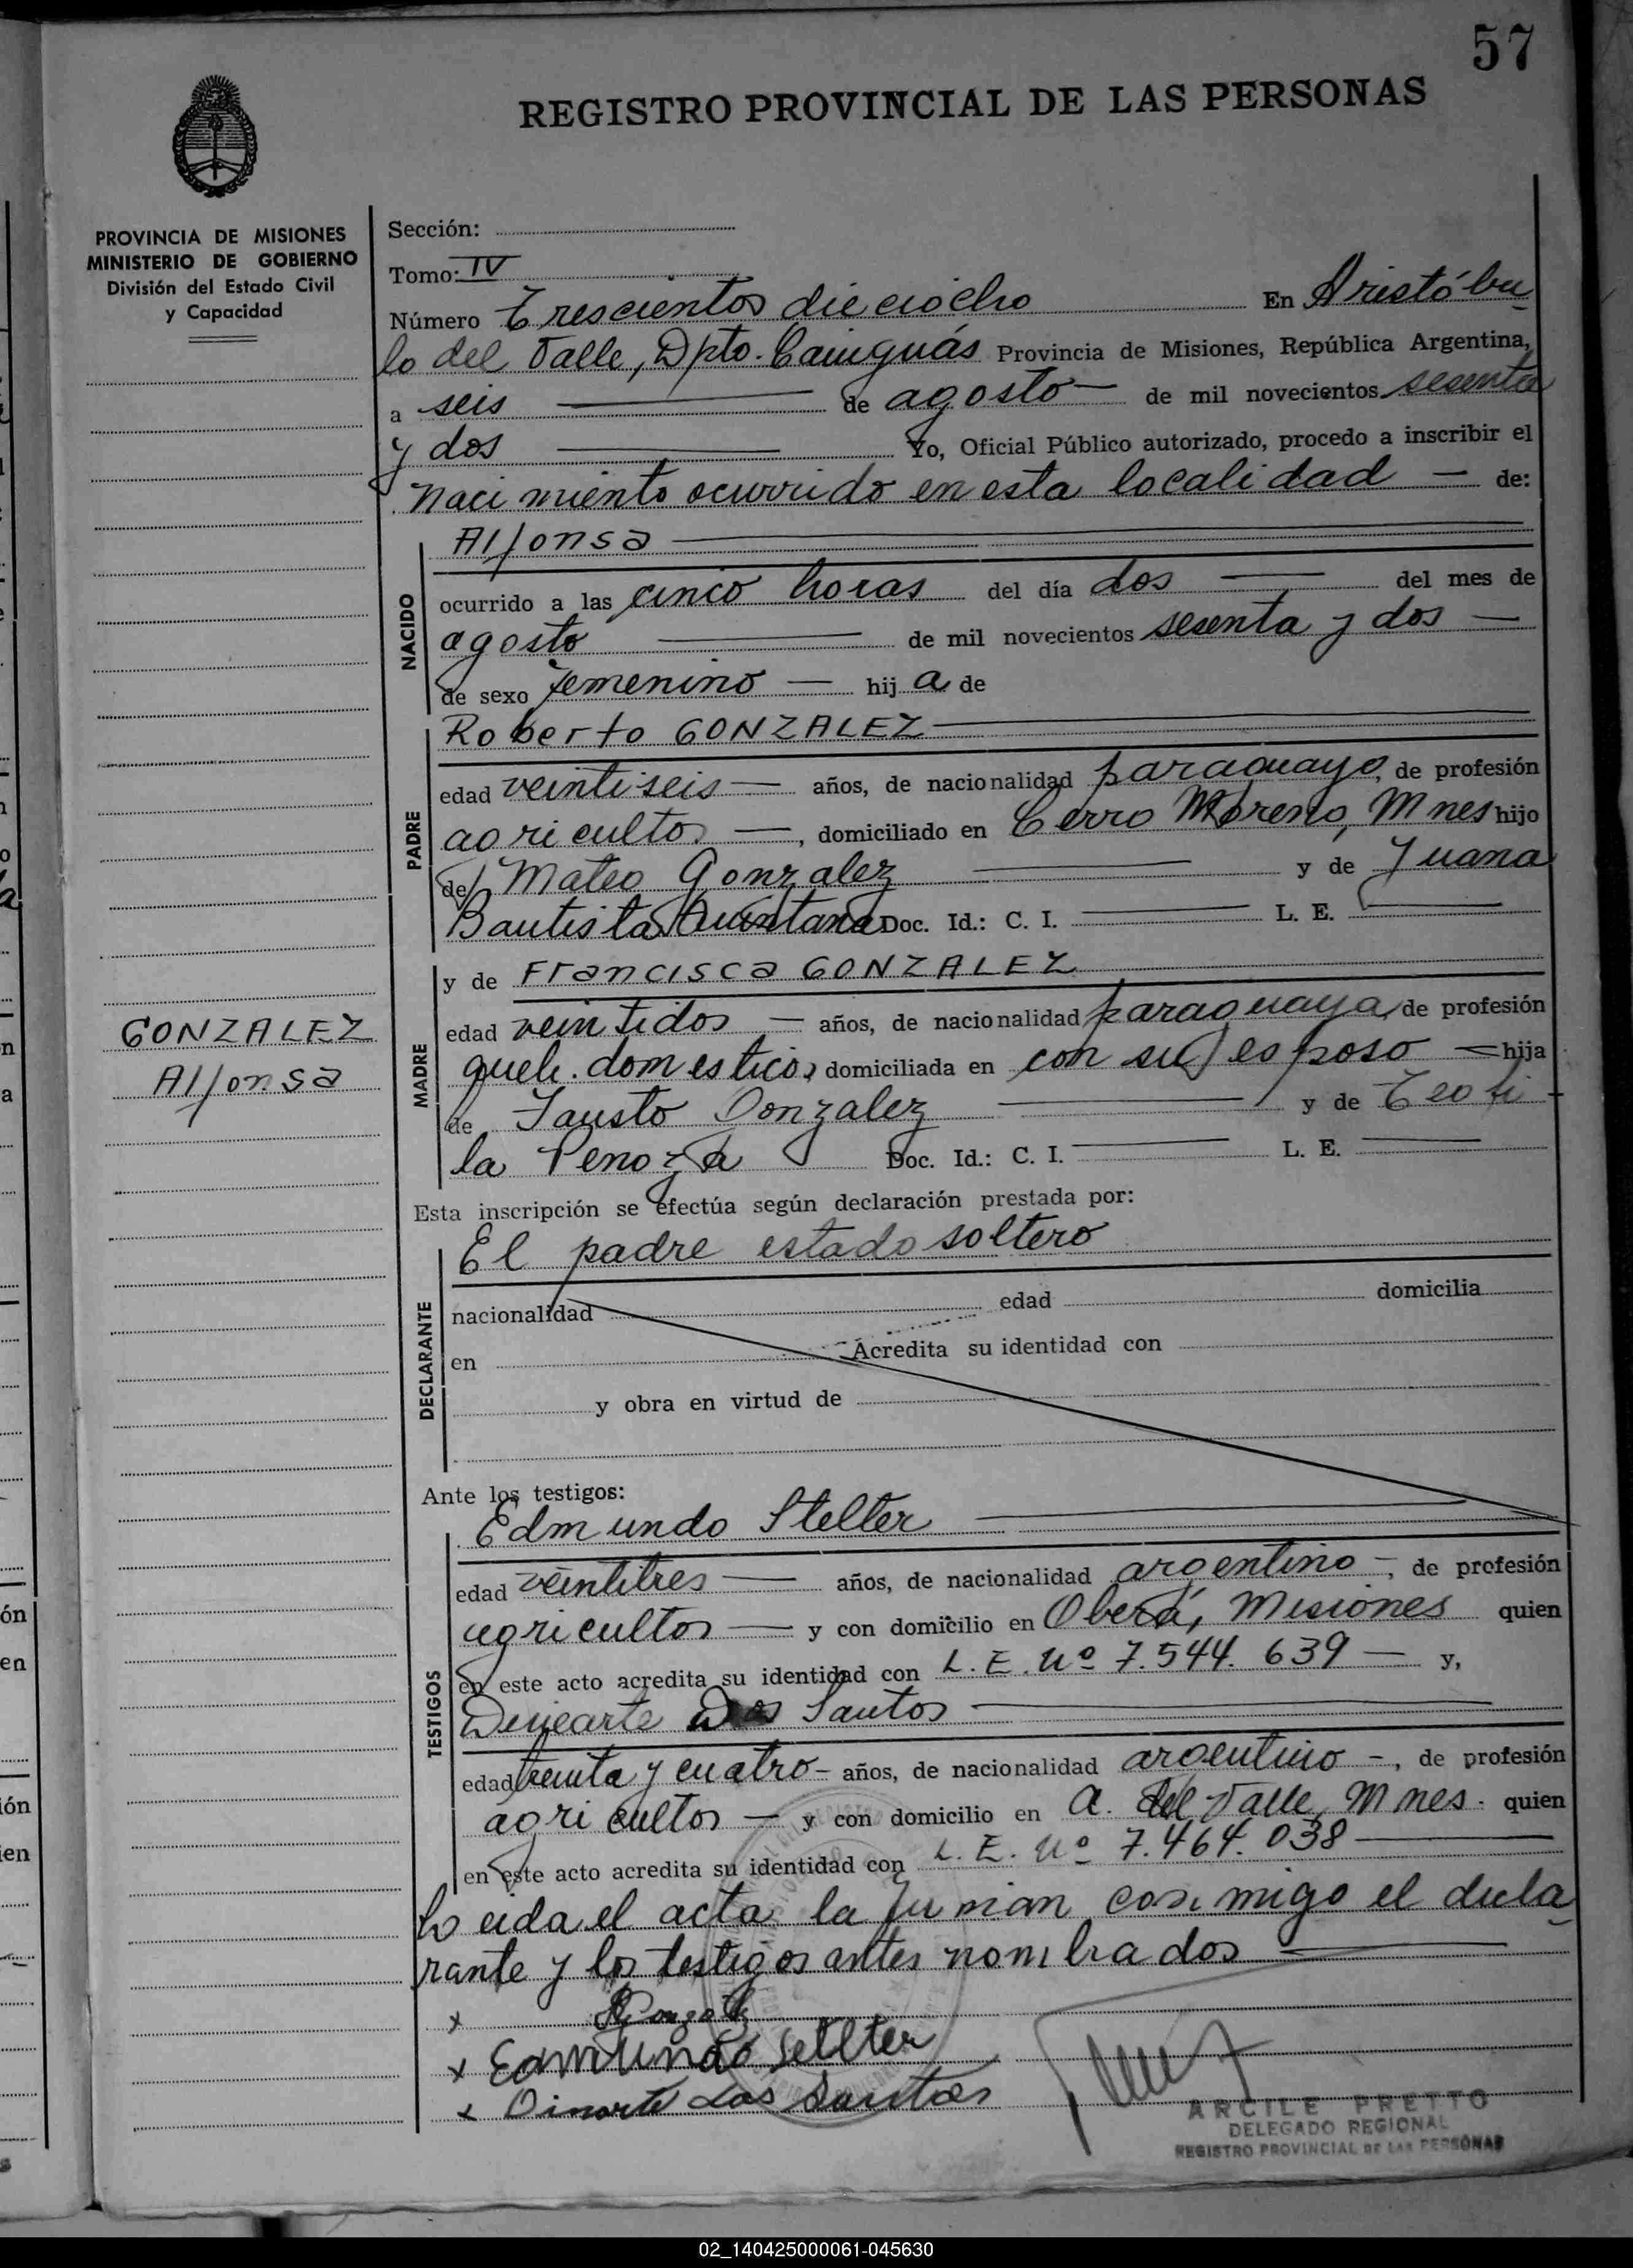 57
REGISTRO PROVINCIAL DE LAS PERSONAS
PROVINCIA DE MISIONES
MINISTERIO DE GOBIERNO
División del Estado Civil
y Capacidad
Sección:
Tomo: IV
Número Trescientos dieciocho En Aristóbu
lo del Valle, Dpto. Cainguás Provincia de Misiones, República Argentina,
a seis de agosto de mil novecientos sesenta
y dos Yo, Oficial Público autorizado, procedo a inscribir el
nacimiento ocurrido en esta localidad de:
Alfonsa
NACIDO
ocurrido a las cinco horas del día dos del mes de
agosto de mil novecientos sesenta y dos
de sexo femenino hij a de
Roberto GONZALEZ
PADRE
edad veintiseis años, de nacionalidad paraguayo, de profesión
agricultor, domiciliado en Cerro Moreno, Mnes hijo
de Mateo Gonzalez y de Juana
Bautista Quintana Doc. Id.: C. I. L. E.
y de Francisca GONZALEZ
MADRE
edad veintidos años, de nacionalidad paraguaya, de profesión
queh. domesticos, domiciliada en con su esposo hija
de Fausto Gonzalez y de Teofi
la Penoza Doc. Id.: C. I. L. E.
Esta inscripción se efectúa según declaración prestada por:
El padre estado soltero
DECLARANTE
nacionalidad edad domicilia
en Acredita su identidad con
y obra en virtud de
GONZALEZ
Alfonsa
Ante los testigos:
Edmundo Stelter
TESTIGOS
edad veintitres años, de nacionalidad argentino, de profesión
agricultor y con domicilio en Oberá, Misiones quien
en este acto acredita su identidad con L. E. Nº 7.544.639 y,
Dos Santos
edad treinta y cuatro años, de nacionalidad argentino, de profesión
agricultor y con domicilio en A. del Valle, Mnes. quien
en este acto acredita su identidad con L. E. Nº 7.464.038
Leida el acta la firman conmigo el decla
rante y los testigos antes nombrados
x
x Edmundo Stelter
x Dinarte Dos Santos
ARCILE PRETTO
DELEGADO REGIONAL
REGISTRO PROVINCIAL DE LAS PERSONAS
02_140425000061-045630